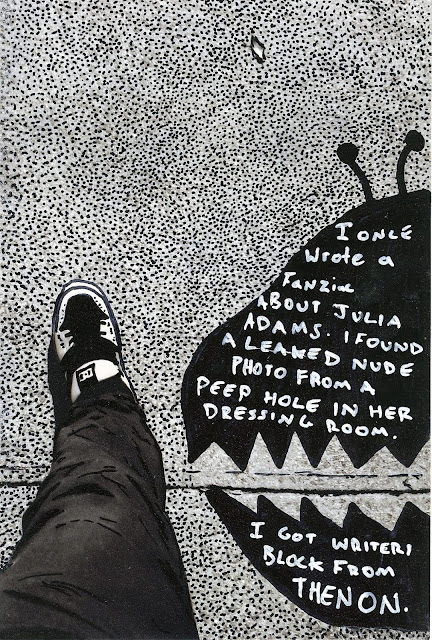 I ONCE
Wrote a
Fanzine
ABOUT JULIA
ADAMS. I FOUND
A LEAKED NUDE
PHOTO FROM A
PEEP HOLE IN HER
DRESSING ROOM.
I GOT WRITERS
BLOCK FROM
THEN ON.